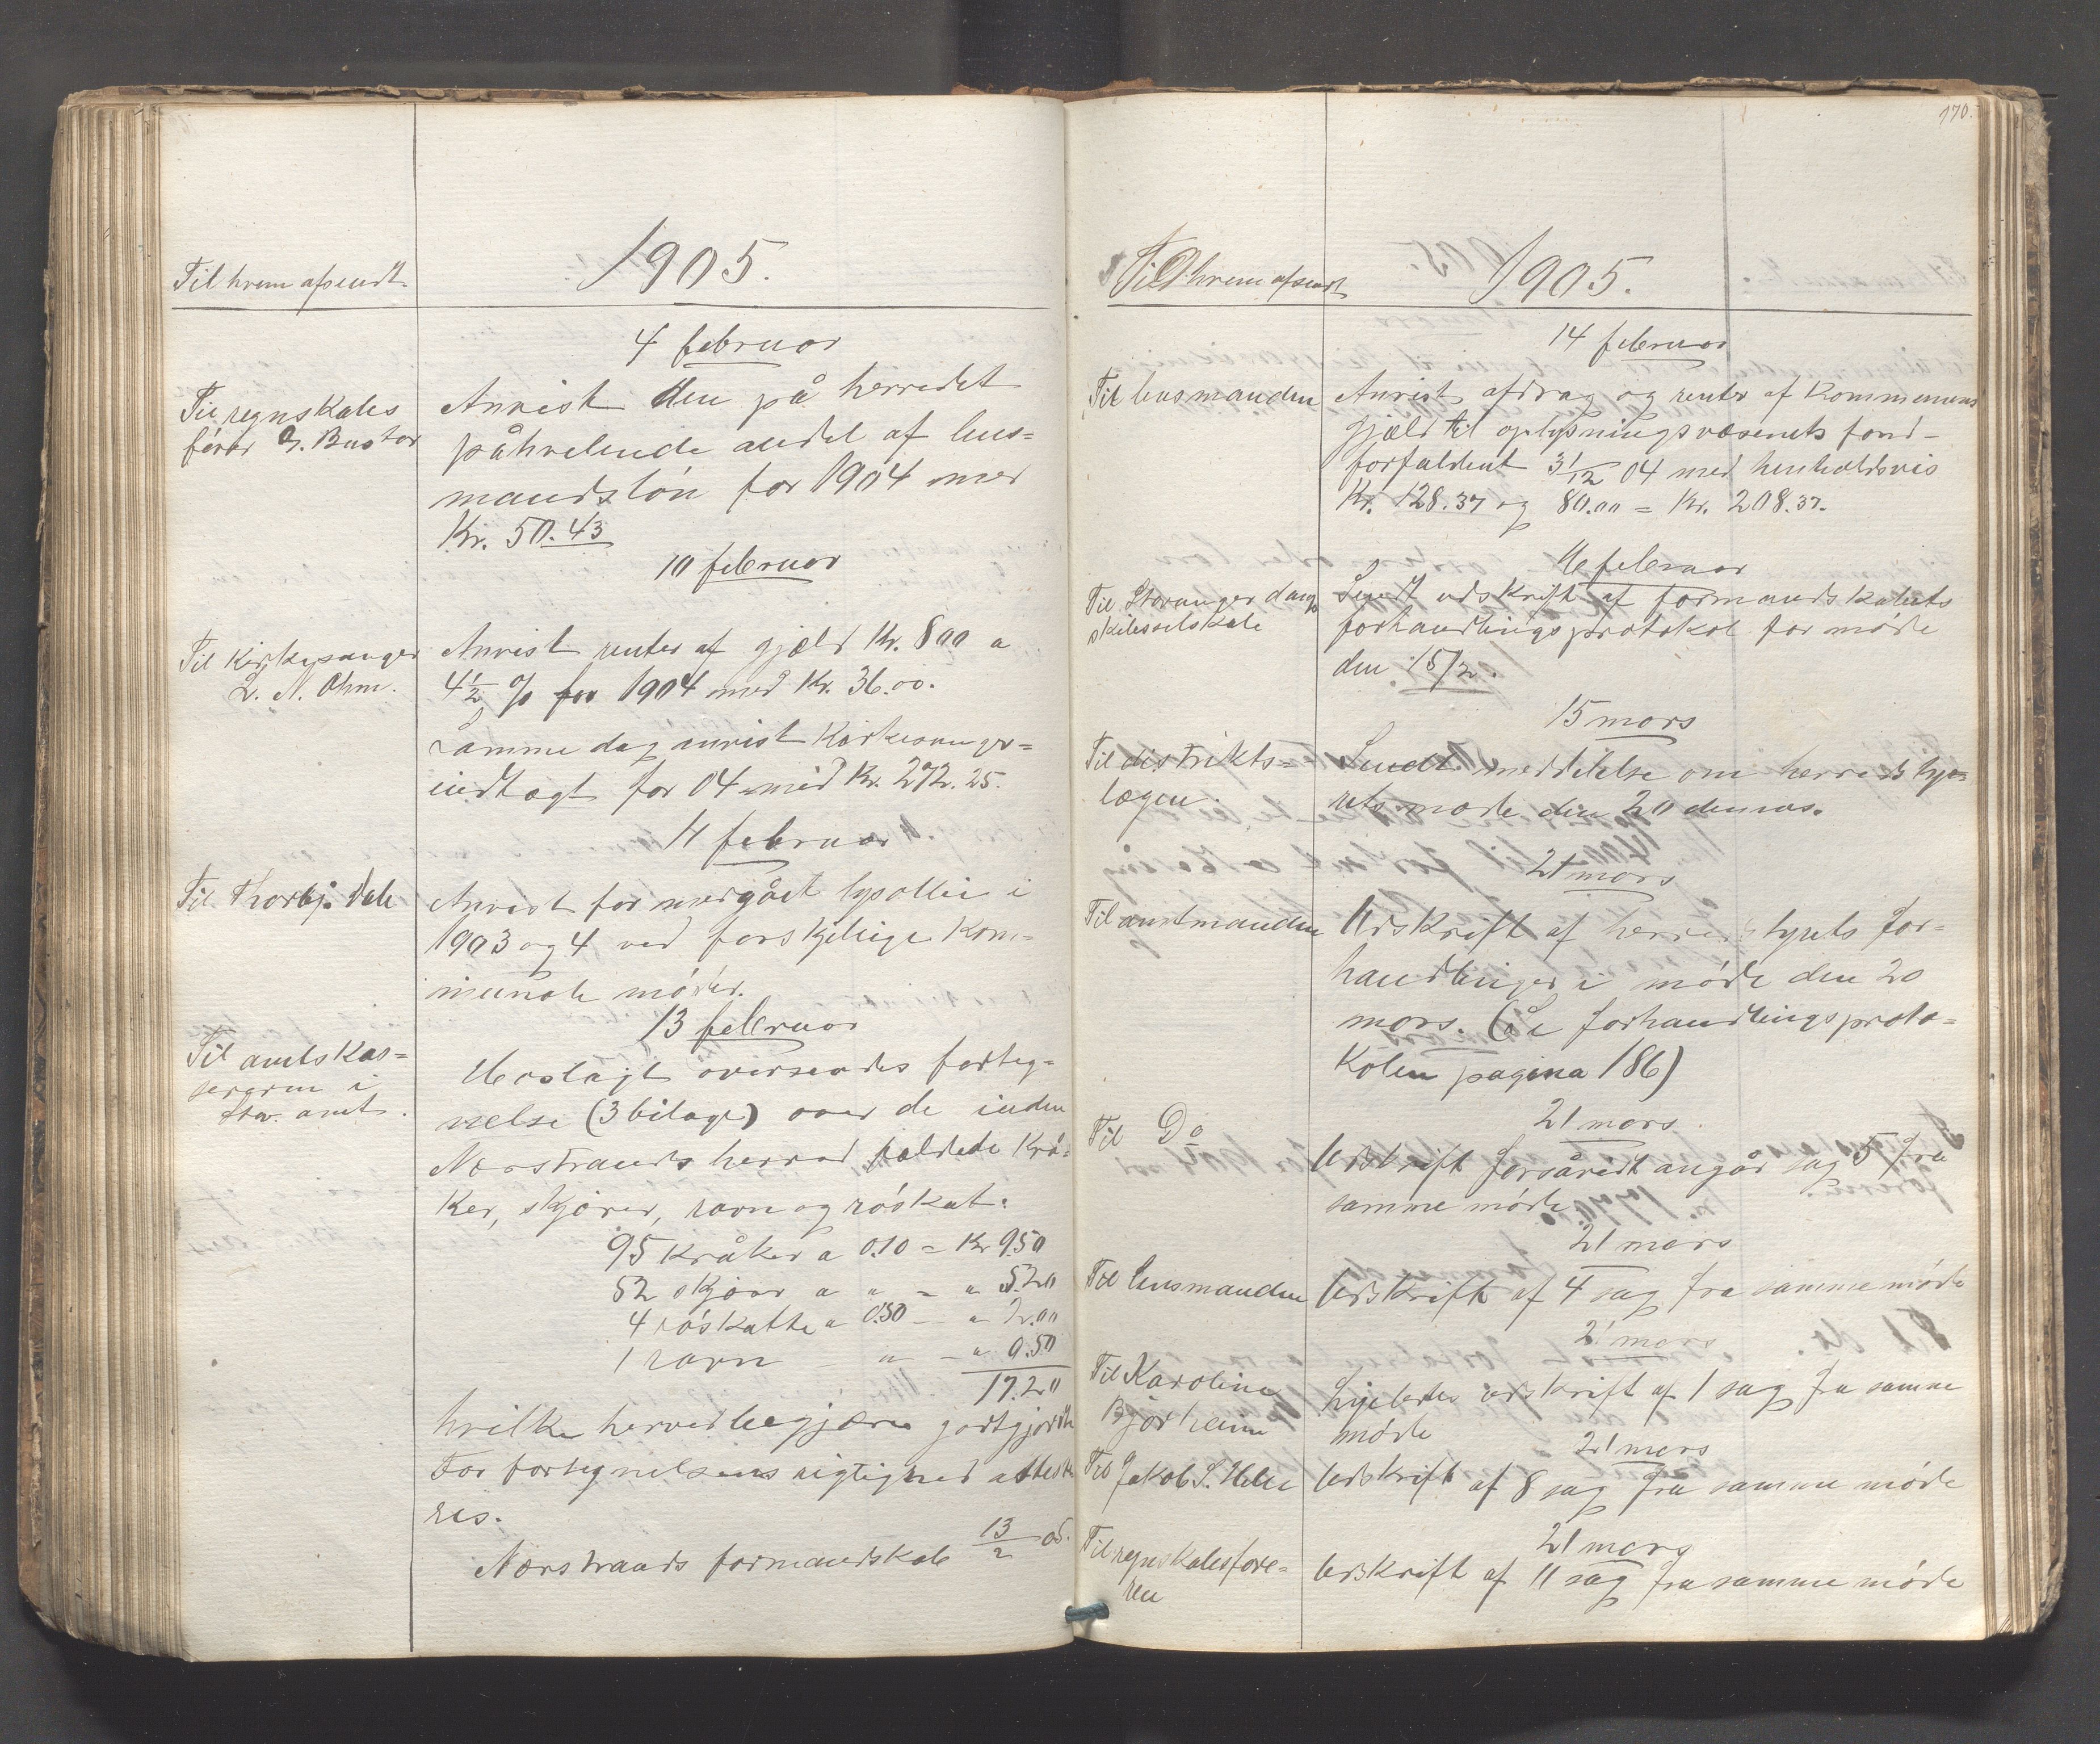 Til hvem afsendt.
1905.
4 februar
Til regnskabs
fører G. Bustos
Anvist den på herredet
påhvilende andel af lens=
mandsløn for 1904 med
Kr. 50.43
10 februar
Til Kirkesanger
L. N. Ohm.
Anvist renter af gjæld Kr. 800 a
4½ % for 1904 med Kr. 36.00.
Samme dag anvist Kirkesanger=
indtægt for 04 med Kr. 272.25.
11 februar
Til Thorbj. Dale
Anvist for medgået lysolie i
1903 og 4 ved forskjelige kom=
munale møder.
13 februar
Til amtskas=
sereren i
Stav. amt.
Vedlagt oversendes forteg=
nelse (3 bilage) over de inden
Nerstrands herred fældede krå=
ker, skjærer, ravn og røskat:
95 kråker a 0.10 = Kr 9.50
52 skjær a " = " 5.20
4 røskatte a 0.50 — " 2.00
1 ravn — " — " 0.50
17.20
hvilke herved begjæres godtgjordt
For fortegnelsens rigtighed atteste
res.
Nerstrands formandskab 13/2 05.
170.
Til hvem afsendt
1905.
14 februar
Til lensmanden
Anvist afdrag og renter af kommunens
gjæld til oplysningsvæsenets fond
forfaldent 31/12 04 med henholdsvis
Kr. 128.37 og 80.00 = Kr. 208.37.
16 februar
Til Stavanger damp
skibsselskab
Sendt udskrift af formandskabets
forhandlingsprotokol for møde
den 15/2.
15 mars
Til distrikts=
lægen.
Sendt meddelelse om herredssty=
rets møde den 20 dennes.
21 mars
Til amtmanden
Udskrift af herredstyrets for=
handlinger i møde den 20
mars. (Se forhandlingsproto=
kolen pagina 186)
21 mars.
Til Do
Udskrift forsåvidt angår sag 5 fra
samme møde
21 mars
Til lensmanden
Udskrift af 4 sag fra samme møde
21 mars
Til Karoline
Bjørheim
Ligeledes udskrift af 1 sag fra samme
møde
21 mars
Til Jakob S. Helle
Udskrift af 8 sag fra samme møde
21 mars
Til regnskabsføre=
ren
Udskrift af 11 sag fra samme møde